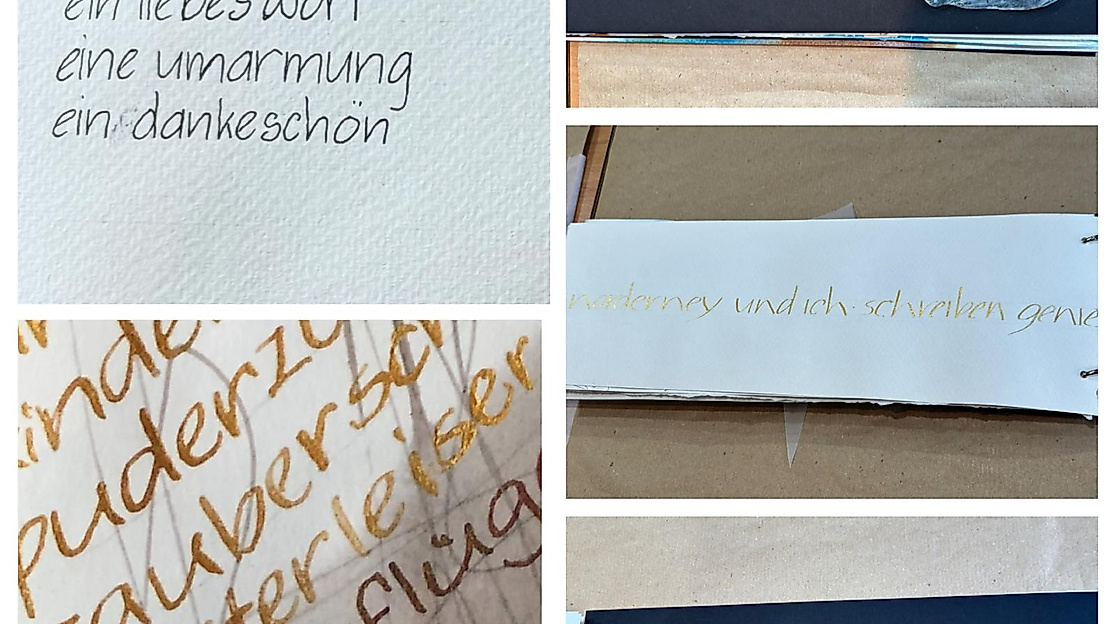 ein liebes wort
eine umarmung
ein dankeschön
puder
zauber
leiser
naderney und ich schreiben genie